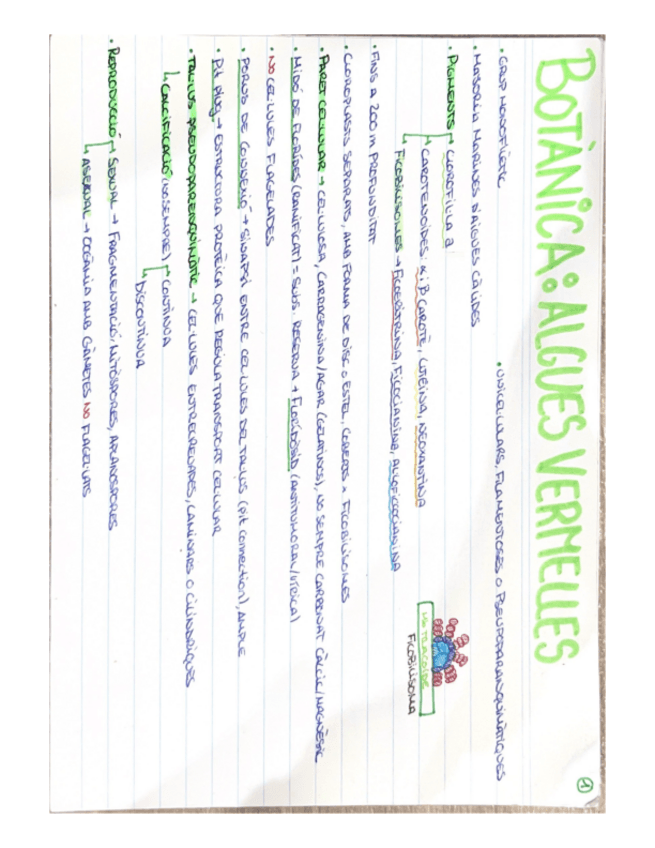 BOTÀNICA: ALGUES VERMELLES
1
· GRUP MONOFILÈTIC · UNICEL·LULARS, FILAMENTOSES O PSEUDOPARENQUIMÀTIQUES
· MAJORIA MARINES D'AIGUES CÀLIDES
· PIGMENTS → CLOROFIL·LA a
CAROTENOIDES: α i β CAROTÈ, LUTEÏNA, NEOXANTINA
FICOBILISOMES → FICOERITRINA, FICOCIANINA, ALLOFICOCIANINA
TILACOIDE
FICOBILISOMA
· FINS A 200 m PROFUNDITAT
· CLOROPLASTS SEPARATS, AMB FORMA DE DISC o ESTEL, COBERTS FICOBILISOMES
· PARET CEL·LULAR → CEL·LULOSA, CARRAGENINA/AGAR (GELATINOS), NO SEMPRE CARBONAT CÀLCIC/MAGNÈSIC
· MIDÓ DE FLORÍDIES (RAMIFICAT) = SUBS. RESERVA → FLORIDÒSID (ANTITUMORAL/VÍRICA)
· NO CEL·LULES FLAGELADES
· PORUS DE CONNEXIÓ → SINAPSI ENTRE CEL·LULES DEL TAL·LUS (pit connection), AMPLE
· Pit plug → ESTRUCTURA PROTÈICA QUE REGULA TRANSPORT CEL·LULAR
· TAL·LUS PSEUDOPARENQUIMÀTIC → CEL·LULES ENTRECREUADES, LAMINARS O CILÍNDRIQUES
CALCIFICACIÓ (NO SEMPRE) CONTÍNUA
DISCONTÍNUA
· REPRODUCCIÓ SEXUAL → FRAGMENTACIÓ, MITÒSPORES, APLANOSPORES
ASEXUAL → OOGÀMIA AMB GÀMETES NO FLAGEL·LATS